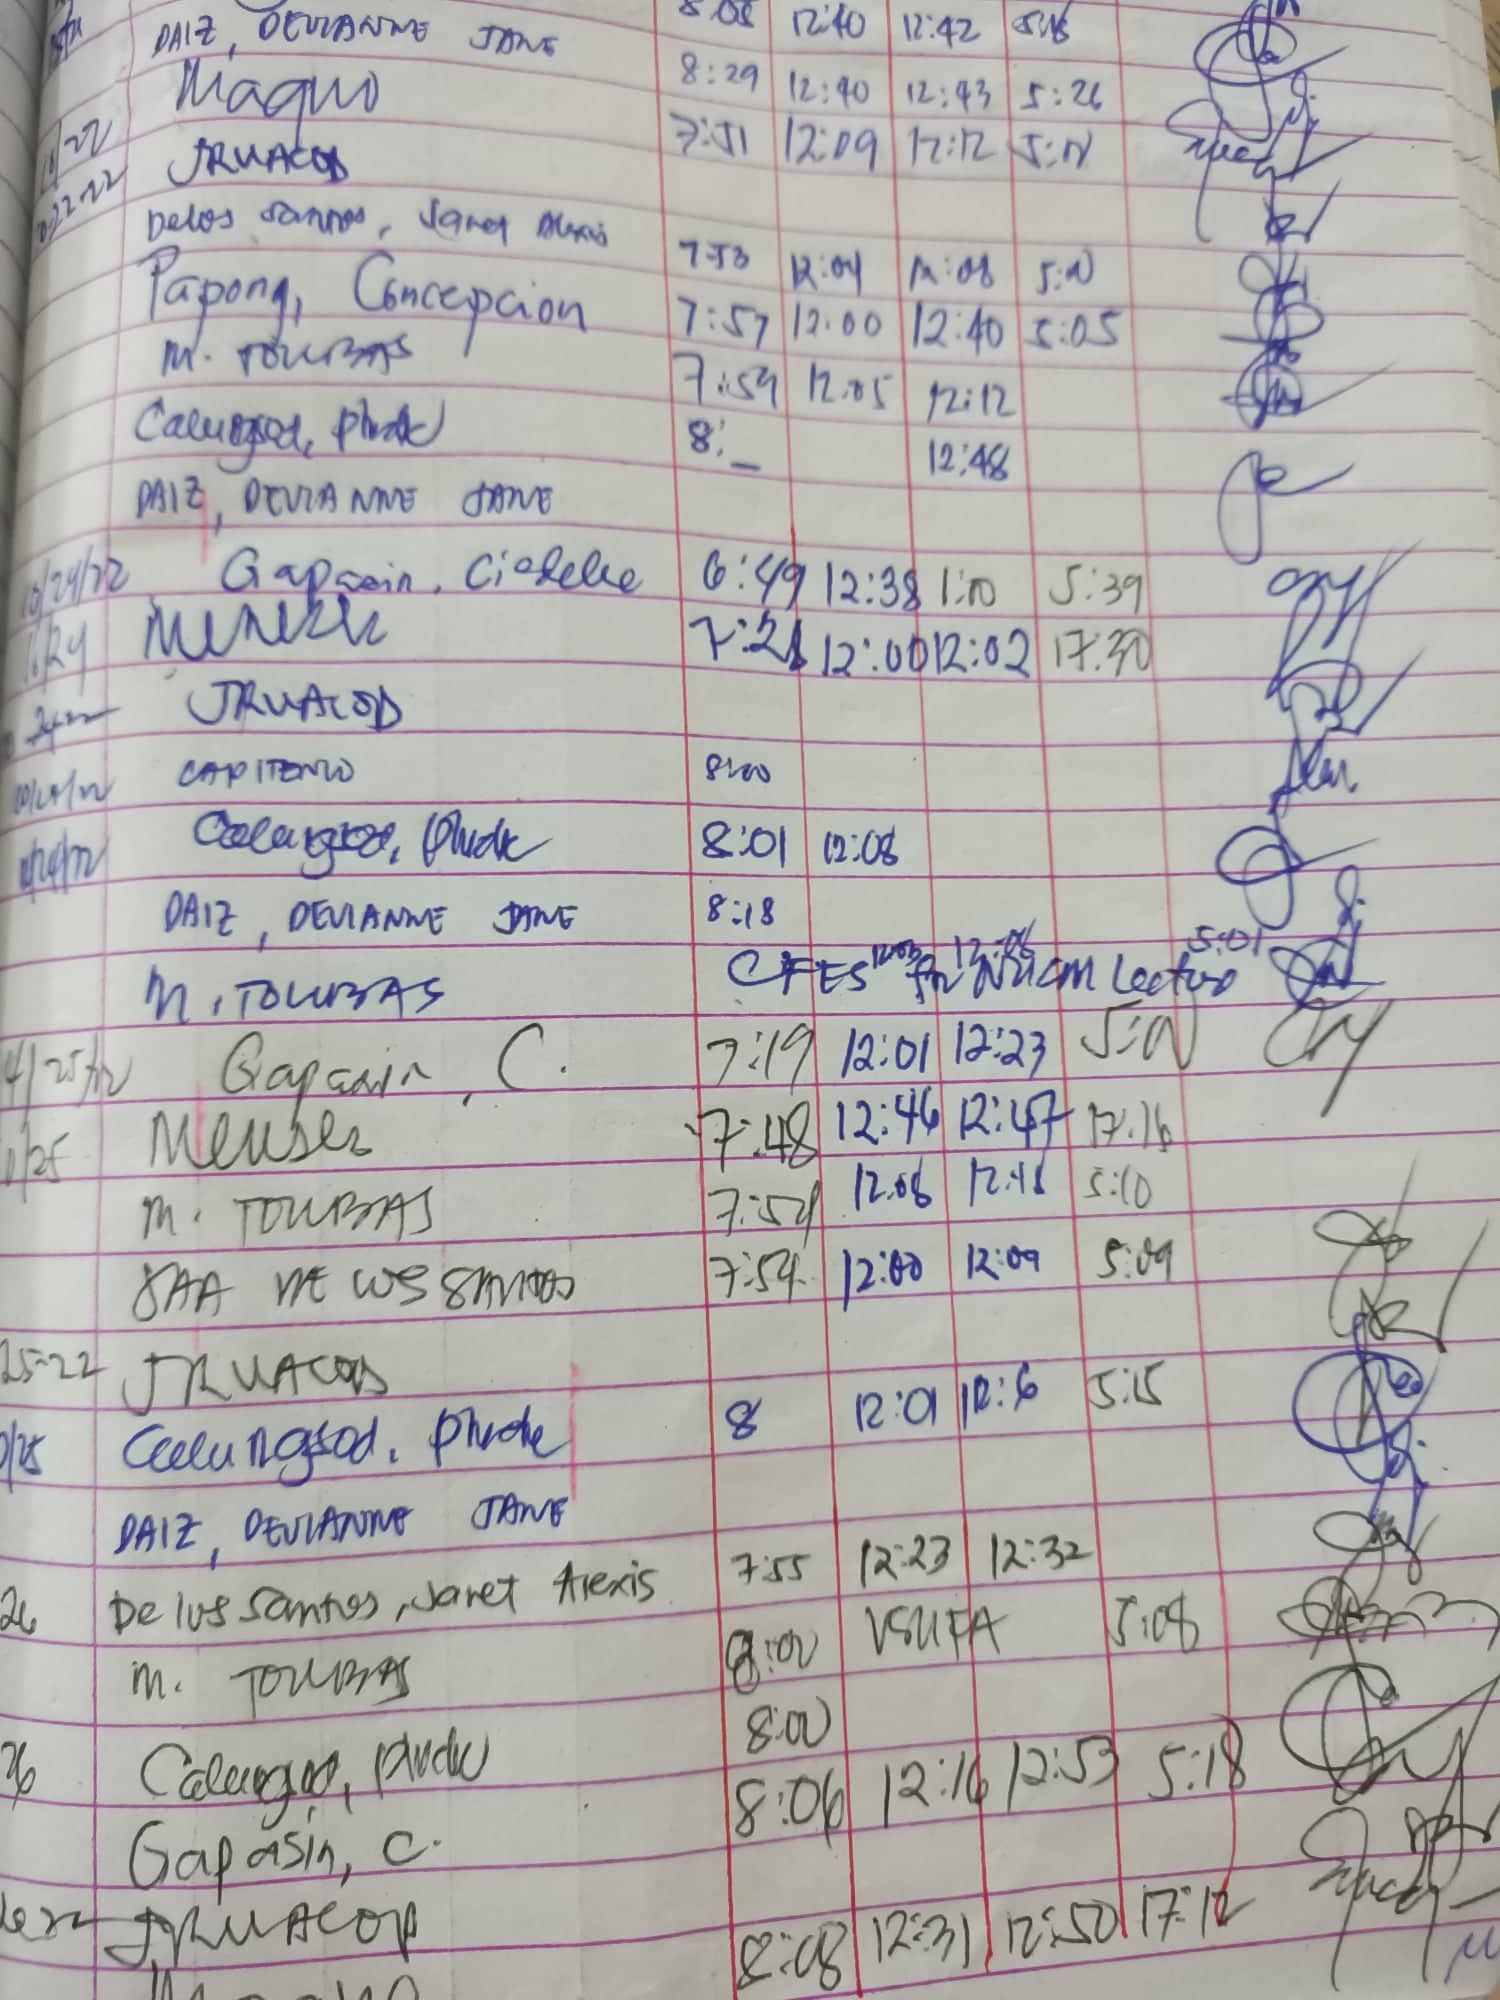 8:05 12:40 12:42
DAIZ, DEVIANNE JANE 8:29 12:40 12:43 5:26
Maquio 7:51 12:09 12:12 5:00
10-22-22 JRUACOD
Delos Santos, Janet Alexis 7:53 12:04 12:08 5:00
Papong, Concepcion 7:57 12:00 12:40 5:05
M. TOLIBAS 7:59 12:05 12:12
Calungsod, Phude 8:_ 12:48
DAIZ, DEVIANNE JANE
10/24/22 Gapasin, Cidelle 6:49 12:38 1:00 5:39
10/24 Meneses 7:28 12:00 12:02 17:30
JRUACOD
10/24/22 CAPITENIO 8:00
10/24/22 Calungsod, Phude 8:01 12:08
DAIZ, DEVIANNE JANE 8:18
M. TOLIBAS CFES 12:03 for 12:06 Lecture 5:01
25/22 Gapasin, C. 7:19 12:01 12:23 5:00
10/25 Meneses 7:48 12:46 12:47 17:16
M. TOLIBAS 7:54 12:08 12:18 5:10
JAA DE LOS SANTOS 7:54 12:00 12:09 5:09
25-22 JRUACOD
10/25 Calungsod, Phude 8 12:01 12:6 5:15
DAIZ, DEVIANNE JANE
26 De los Santos, Janet Alexis 7:55 12:23 12:32
M. TOLIBAS 8:00 5:08
26 Calungsod, Phude 8:00
Gapasin, C. 8:06 12:16 12:53 5:18
JRUACOD
8:08 12:31 12:50 17:12